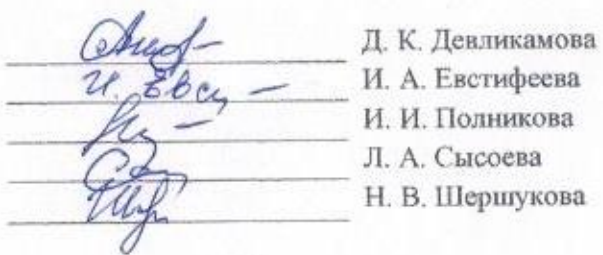 Д. К. Девликамова
И. Евсц – И. А. Евстифеева
И. И. Полникова
Л. А. Сысоева
Н. В. Шершукова